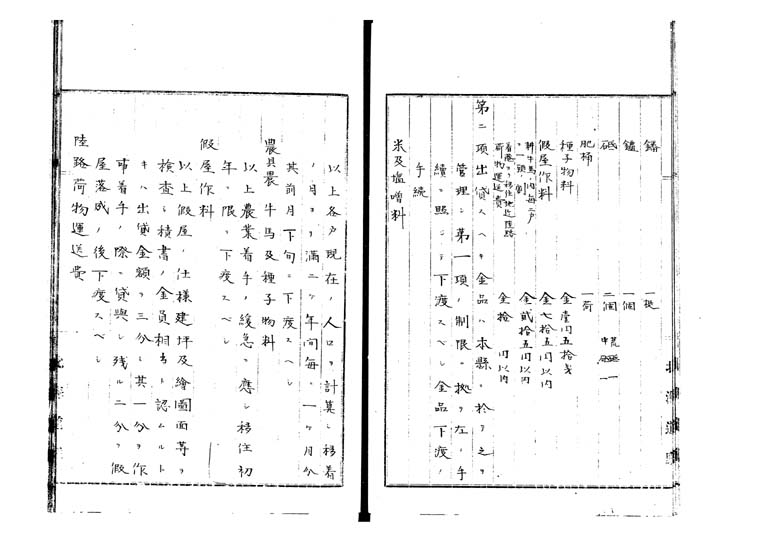 鐇 一挺
鑪 一個
砥 二個
肥桶 一荷
種子物料 金壹円五拾戋
假屋作料 金七拾五円以内
耕牛馬ノ内毎二戸
一頭ノ割 金貳拾五円以内
着港ヨリ移住地迄陸路
荷物運送費 金拾 円以内
第二項出貸スヘキ金品ハ本縣ニ於テ之ヲ
管理シ第一項ノ制限ニ拠リ左ノ手
續ニ照シテ下渡スベシ金品下渡ノ
手続
米及塩噌料
以上各戸現在ノ人口ヲ計算シ移着
ノ月ヨリ満二ケ年間毎ニ一ケ月分
其前月下旬ニ下渡スベシ
農具農牛馬及種子物料
以上農業着手ノ緩急ニ應シ移住初
年ニ限リ下渡スベシ
假屋作料
以上假屋ノ仕様建坪及繪圖面等ヲ
検査シ積書ノ金員相当ト認ムルト
キハ出貸金額ヲ三分シ其一分ヲ作
事着手ノ際ニ貸與シ残ル二分ヲ假
屋落成ノ後下渡スベシ
陸路荷物運送費